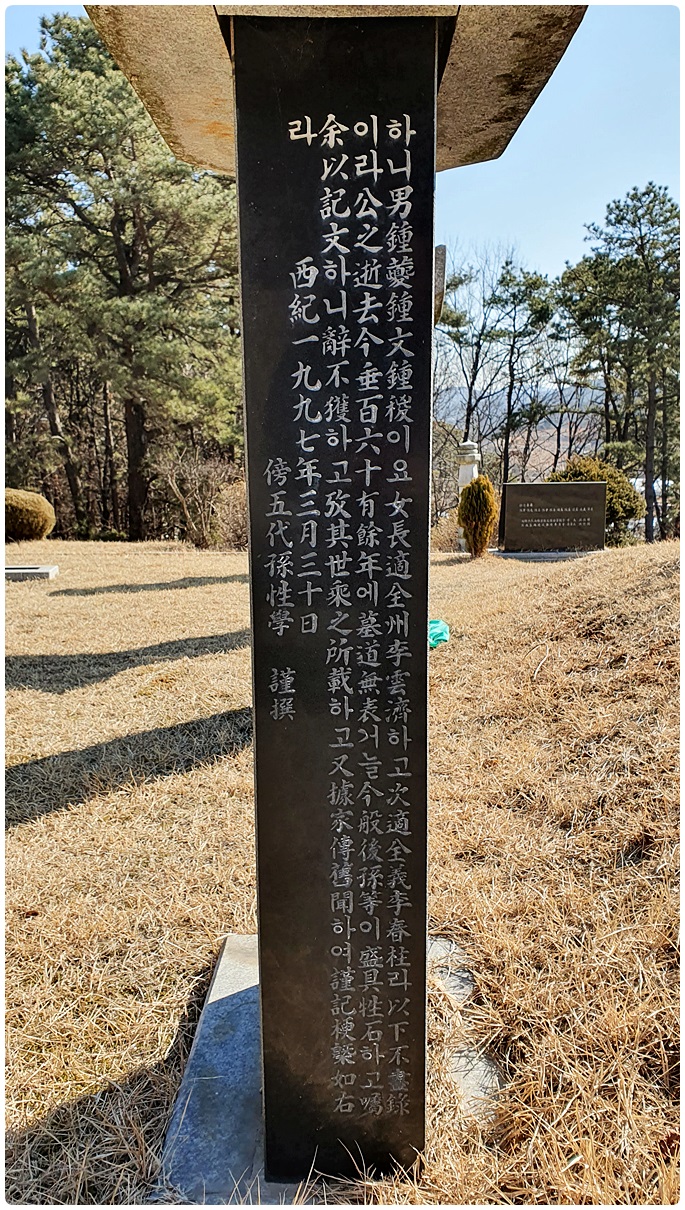 하니男鍾夔鍾文鍾稷이요女長適全州李雲濟하고次適全義李春柱라以下不盡錄
이라公之逝去今垂百六十有餘年에墓道無表거늘今般後孫等이盛具牲石하고囑
余以記文하니辭不獲하고攷其世乘之所載하고又據家傳舊聞하여謹記梗槩如右
라
西紀一九九七年三月三十日
傍五代孫性學 謹撰